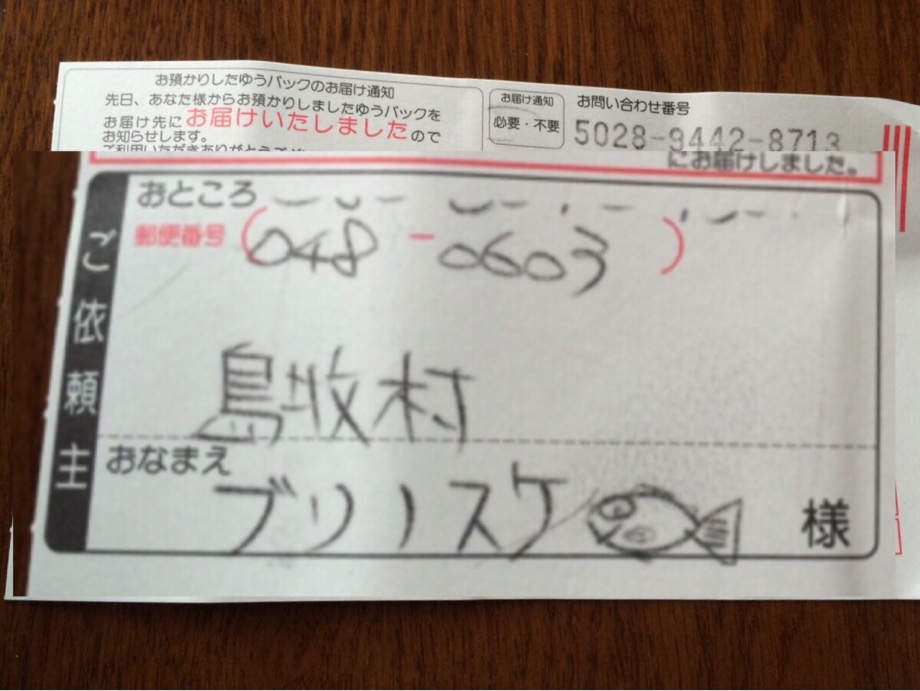 お預かりしたゆうパックのお届け通知
先日、あなた様からお預かりしましたゆうパックを
お届け先にお届けいたしましたので
お知らせします。
ご利用いただきありがとうござい
お届け通知
必要・不要
お問い合わせ番号
5028-9442-8713
にお届けしました。
ご依頼主
おところ
郵便番号(048-0603)
島牧村
おなまえ
ブリノスケ 様